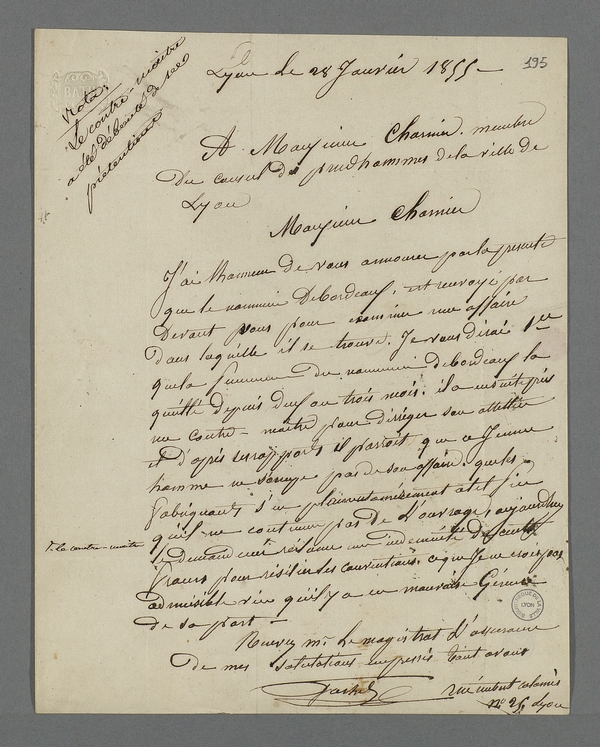 195
Lyon Le 28 Janvier 1855 -
Nota,
Le contre-maître
a été débouté de ses
prétentions
A Monsieur Charnier. membre
Du conseil des prudhommes de la ville de
Lyon
Monsieur Charnier
J'ai l'honneur De vous annoncer par la presente
que le nommé Debordeaux, est renvoyé par
Devant vous pour examiner une affaire
Dans laquelle il se trouve. Je vous dirai
que la femme du nommé debordeaux la
quitté depuis deux ou trois mois. il a ensuite pris
un contre-maître pour diriger son attellier
et d'après ses rapports il parroit que ce Jeune
homme ne s'occupe pas de son affaire. quelques
fabriquants s'en
qu'il ne continue pas De l'ouvrage, aujourdhuy
+ Le contre-maître
Le demandeur réclame une indemnité de cent
francs pour résilier les conventions, ce que Je ne crois pas
admissible vu qu'il y a eu mauvaise Gérance
de sa part -
Recevez mr Le magistrat L'assurance
De mes salutations empressés
rue imbert colomès
no 25, Lyon
BIBLIOTHEQUE DE LA VILLE
LYON